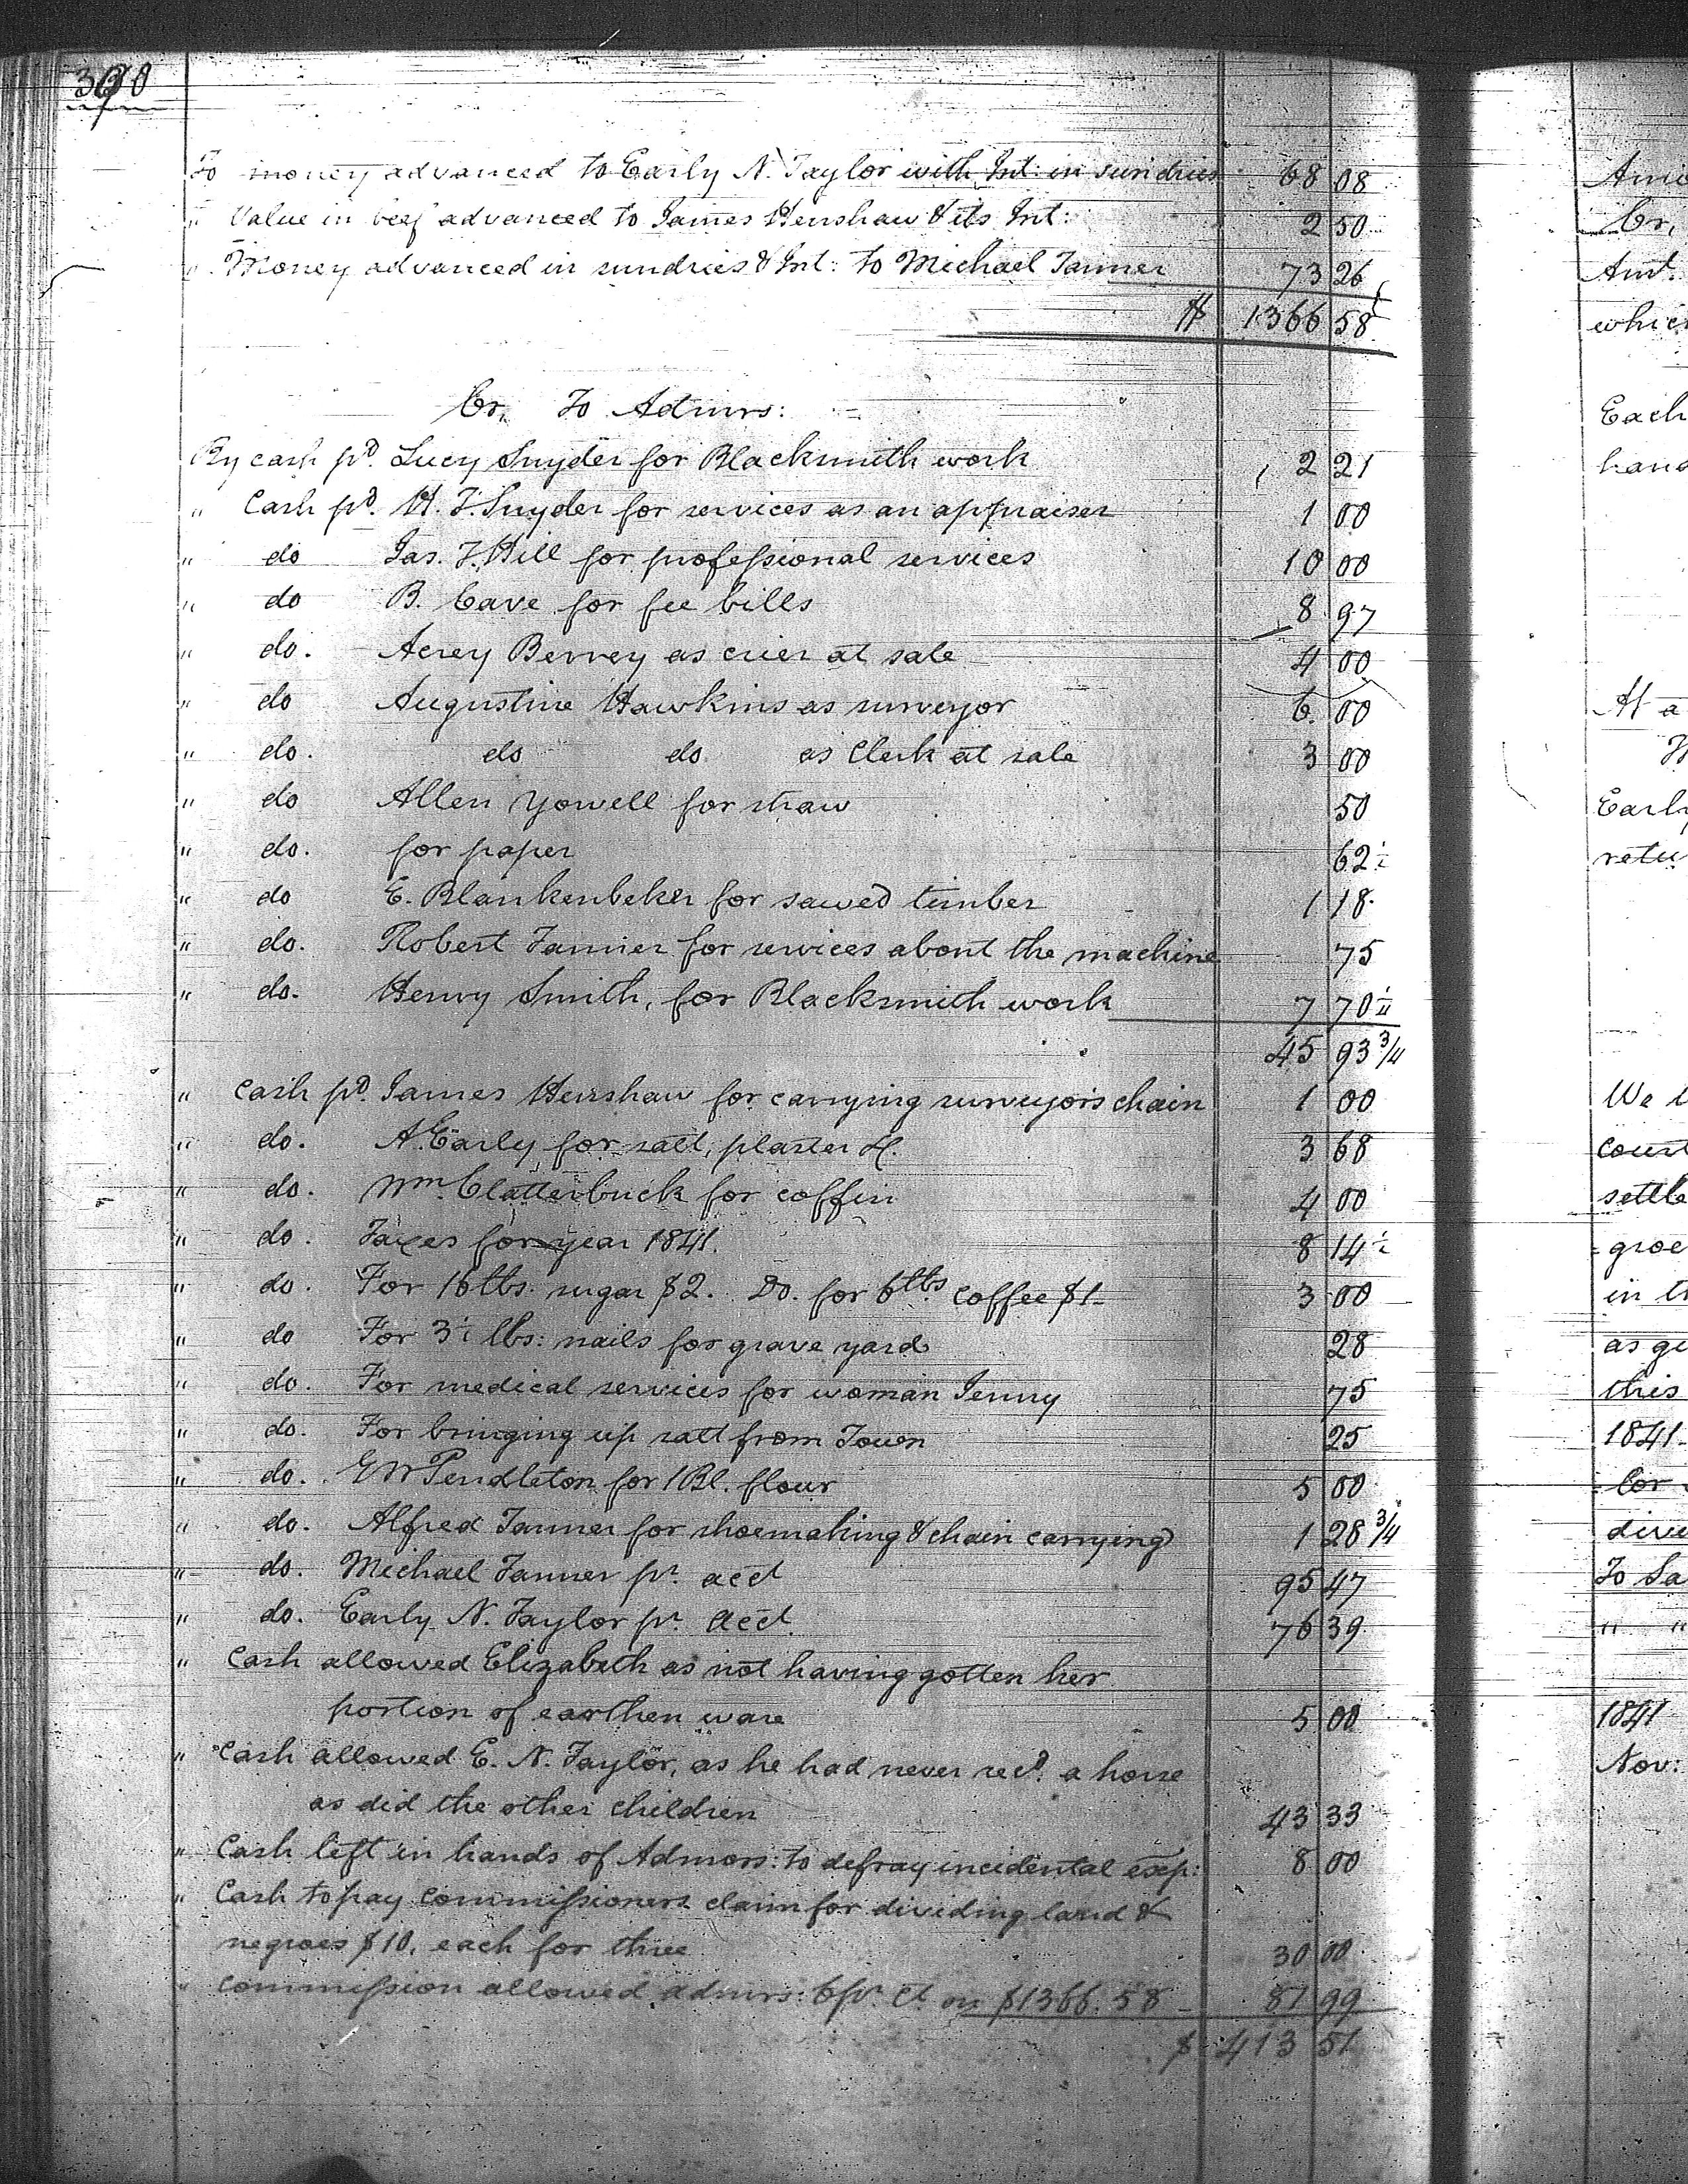 390
To money advanced to Early N. Taylor with Int: in sundries 68 08
" Value in beef advanced to James Henshaw & its Int: 2 50
" Money advanced in sundries & Int: to Michael Tanner 73 26
$ 1366 58
Cr, To Admrs:
By cash pd. Lucy Snyder for Blacksmith work 2 21
" Cash pd. H. F. Snyder for services as an appraiser 1 00
" do Jas. F. Hill for professional services 10 00
" do B. Cave for fee bills 8 97
" do. Acrey Berrey as crier at sale 4 00
" do Augustine Hawkins as surveyor 6. 00
" do. do do as Clerk at sale 3 00
" do Allen Yowell for straw 50
" do. for paper 62½
" do E. Blankenbeker for sawed timber 1 18
" do. Robert Tanner for services about the machine 75
" do. Henry Smith, for Blacksmith work 7 70½
45 93¾
" Cash pd. James Henshaw for carrying surveyors chain 1 00
" do. A. Early for salt, plaster &. 3 68
" do. Wm. Clatterbuck for coffin 4 00
" do. Taxes for year 1841. 8 14½
" do. For 16 lbs. sugar $2. Do. for 6 lbs coffee $1- 3 00
" do For 3½ lbs: nails for grave yard 28
" do. For medical services for woman Jenny 75
" do. For bringing up salt from Town 25
" do. E W Pendleton for 1 Bl. flour 5 00
" do. Alfred Tanner for shoemaking & chain carrying 1 28¾
" do. Michael Tanner pr. acct 95 47
" do. Early N. Taylor pr. acct. 76 39
" Cash allowed Elizabeth as not having gotten her
portion of earthen ware 5 00
" Cash allowed E. N. Taylor, as he had never recd. a horse
as did the other children 43 33
" Cash left in hands of Admors: to defray incidental exp: 8 00
" Cash to pay commissioners claim for dividing land &
negroes $10, each for three 30 00
" commission allowed admrs: 6 pr. ct. on $1366.58 - 81 99
$ 413 51
Cr,
Amt.
which
Each
hand
At a
Early
We
court
settle
in
this
1841
Cor
To
1841
Nov: